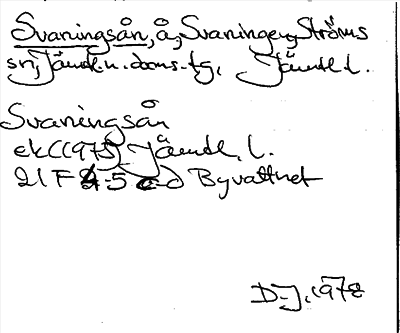 Svaningsån, å, Svaningen, Ströms
sn, Jämtl. n. doms. tg, Jämtl. l.
Svaningsån
ek (1975) Jämtl. l.
21F 4-5 c-d Byvattnet
D-J, 1978